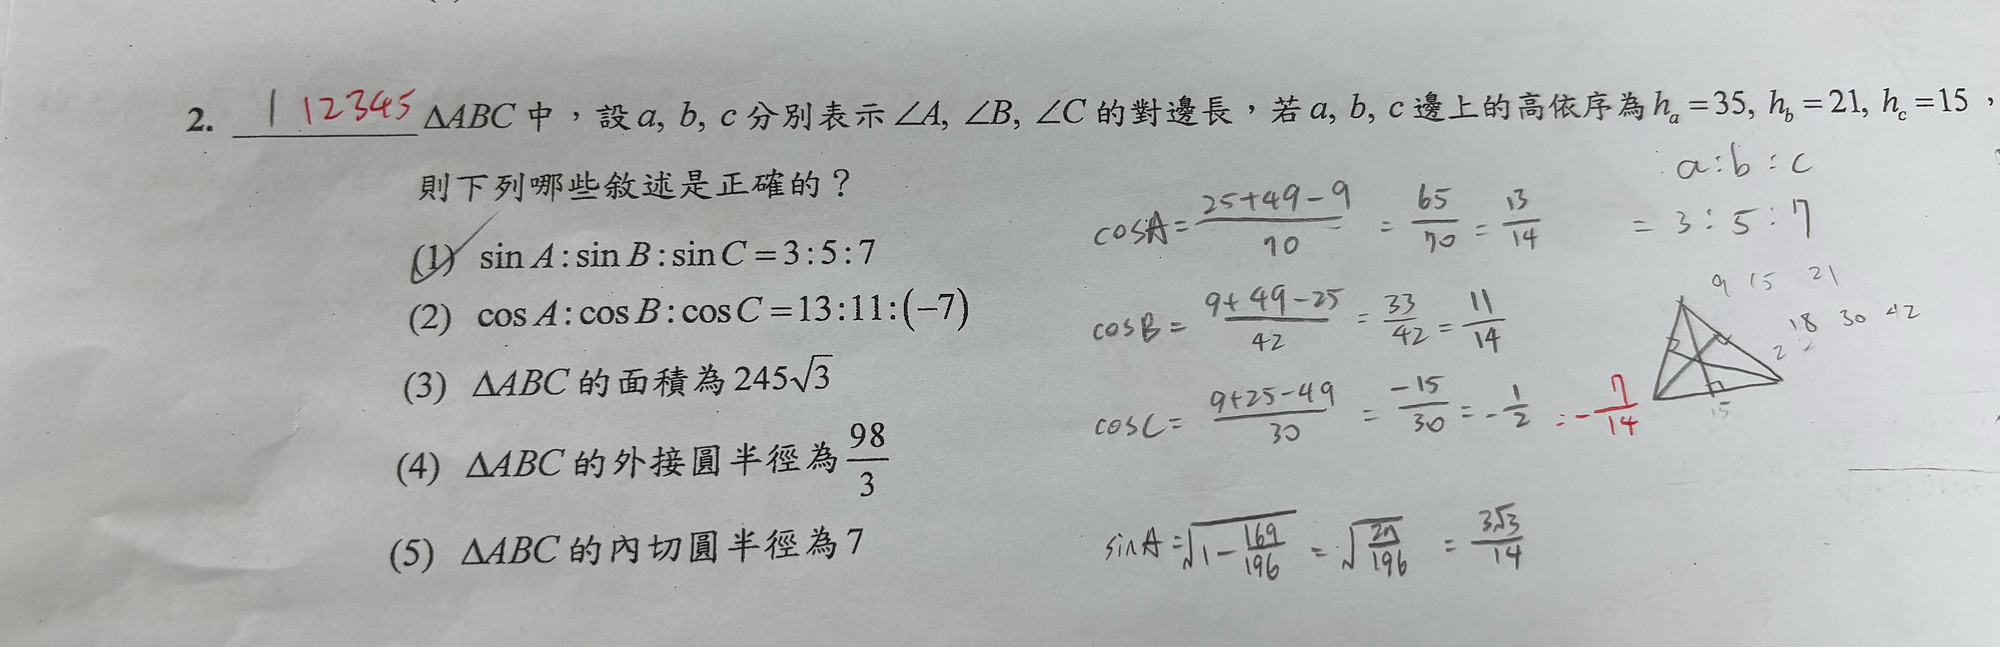 2. 1 12345 ΔABC 中，設 a, b, c 分別表示 ∠A, ∠B, ∠C 的對邊長，若 a, b, c 邊上的高依序為 hₐ = 35, h_b = 21, h_c = 15，
則下列哪些敘述是正確的？
(1) sin A : sin B : sin C = 3 : 5 : 7
(2) cos A : cos B : cos C = 13 : 11 : (−7)
(3) ΔABC 的面積為 245√3
(4) ΔABC 的外接圓半徑為 98/3
(5) ΔABC 的內切圓半徑為 7
a : b : c
= 3 : 5 : 7
cosA = (25+49−9)/70 = 65/70 = 13/14
cosB = (9+49−25)/42 = 33/42 = 11/14
cosC = (9+25−49)/30 = −15/30 = −1/2 = −7/14
sinA = √(1−169/196) = √(27/196) = 3√3/14
9 15 21
18 30 42
15